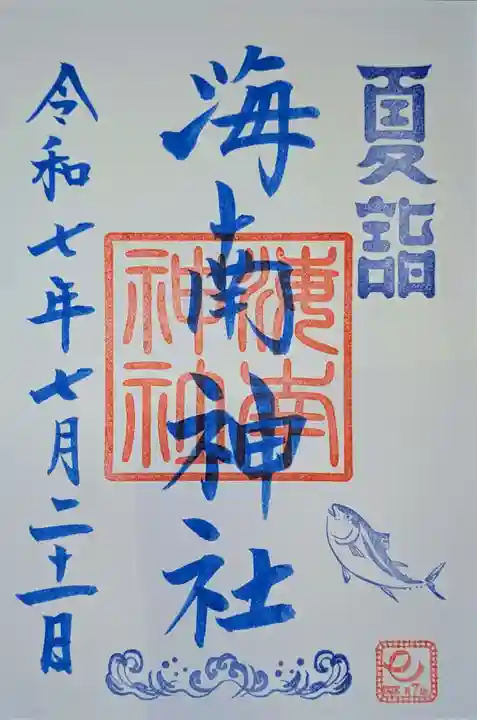 夏詣
海南神社
海南神社
令和七年七月二十一日